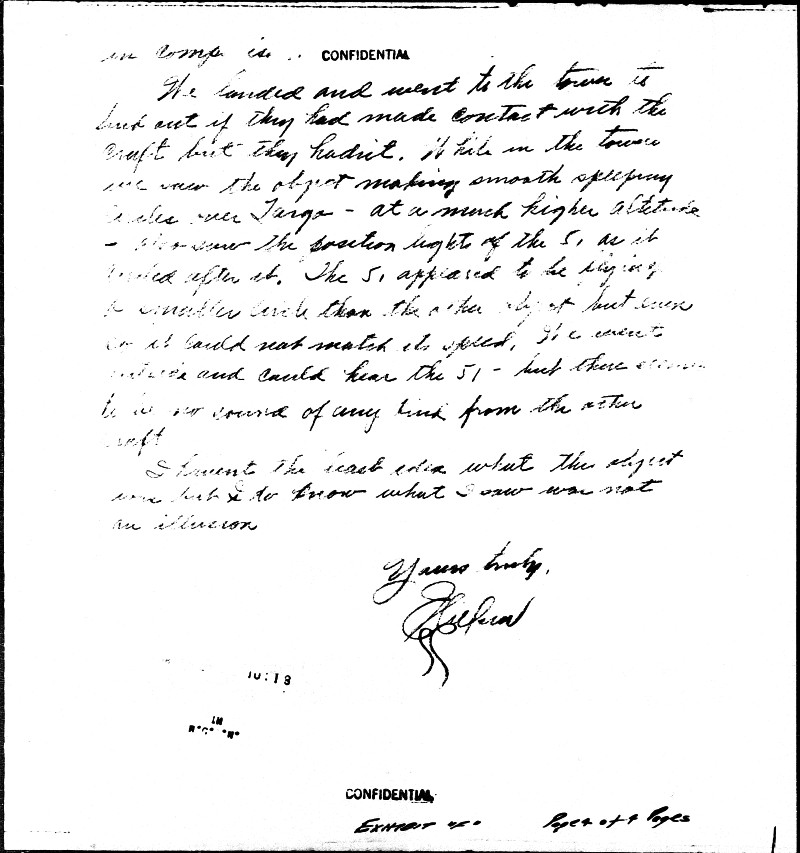 in comp is ..
CONFIDENTIAL
We landed and went to the tower to
find out if they had made contact with the
craft but they hadn't. While in the tower
we saw the object making smooth
circles over Fargo - at a much higher altitude
- also saw the position lights of the 51 as it
after it. The 51 appeared to be flying
a smaller circle than the other object but even
so it could not match its speed. We went
outside and could hear the 51 - but there
to be no sound of any kind from the other
craft
I havent the least idea what the object
was but I do know what I saw was not
an illusion
Yours truly,
10:18
IN
CONFIDENTIAL
EXHIBIT
Page 4 of 4 Pages